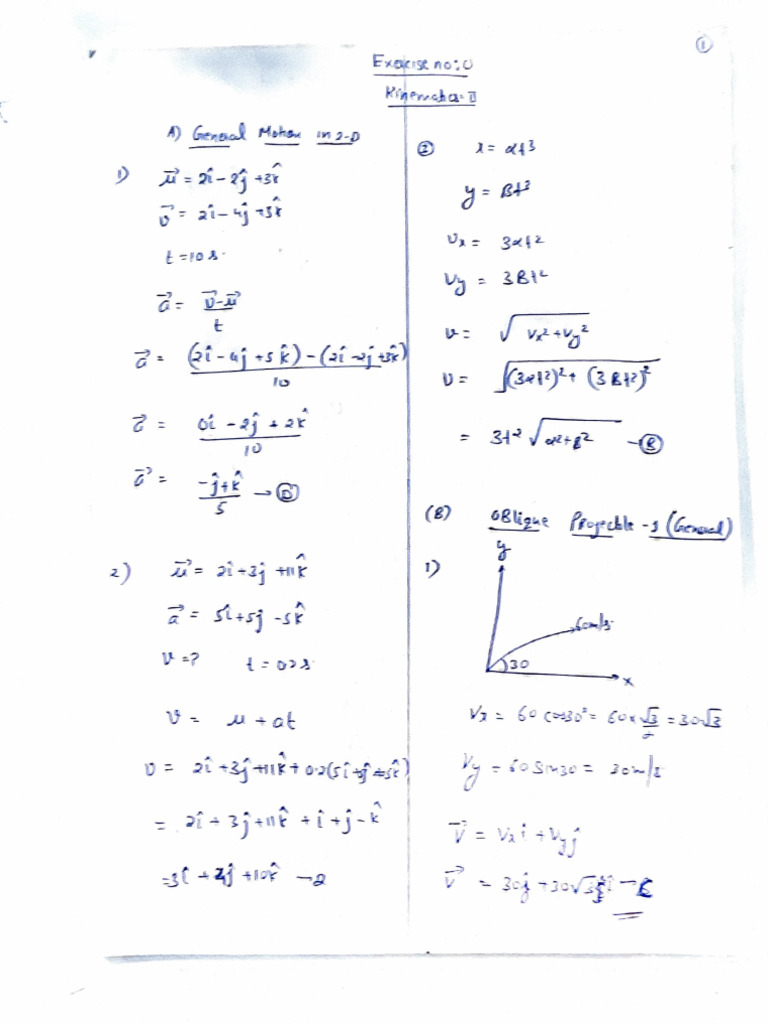 ①
Exercise no: 0
Kinematics-II
A) General Motion in 2-D
1) u⃗ = 2î - 2ĵ + 3k̂
v⃗ = 2î - 4ĵ + 5k̂
t = 10 s.
a⃗ = (v⃗ - u⃗)/t
a⃗ = ((2î - 4ĵ + 5k̂) - (2î - 2ĵ + 3k̂))/10
a⃗ = (0î - 2ĵ + 2k̂)/10
a⃗ = (-ĵ + k̂)/5 → Ⓓ
2) u⃗ = 2î + 3ĵ + 11k̂
a⃗ = 5î + 5ĵ - 5k̂
v = ? t = 0.2 s.
v = u + at
v = 2î + 3ĵ + 11k̂ + 0.2(5î + 5ĵ + 5k̂)
= 2î + 3ĵ + 11k̂ + î + ĵ - k̂
= 3î + 4ĵ + 10k̂ → 2
③ x = αt³
y = βt³
Vx = 3αt²
Vy = 3βt²
v = √(Vx² + Vy²)
v = √((3αt²)² + (3βt²)²)
= 3t² √(α² + β²) → Ⓑ
(B) OBlique Projectile - 1 (General)
1)
y
60m/s
30
x
Vx = 60 cos30° = 60 × √3/2 = 30√3
Vy = 60 Sin30 = 30m/s
V⃗ = Vx i + Vy j
V⃗ = 30ĵ + 30√3 î →